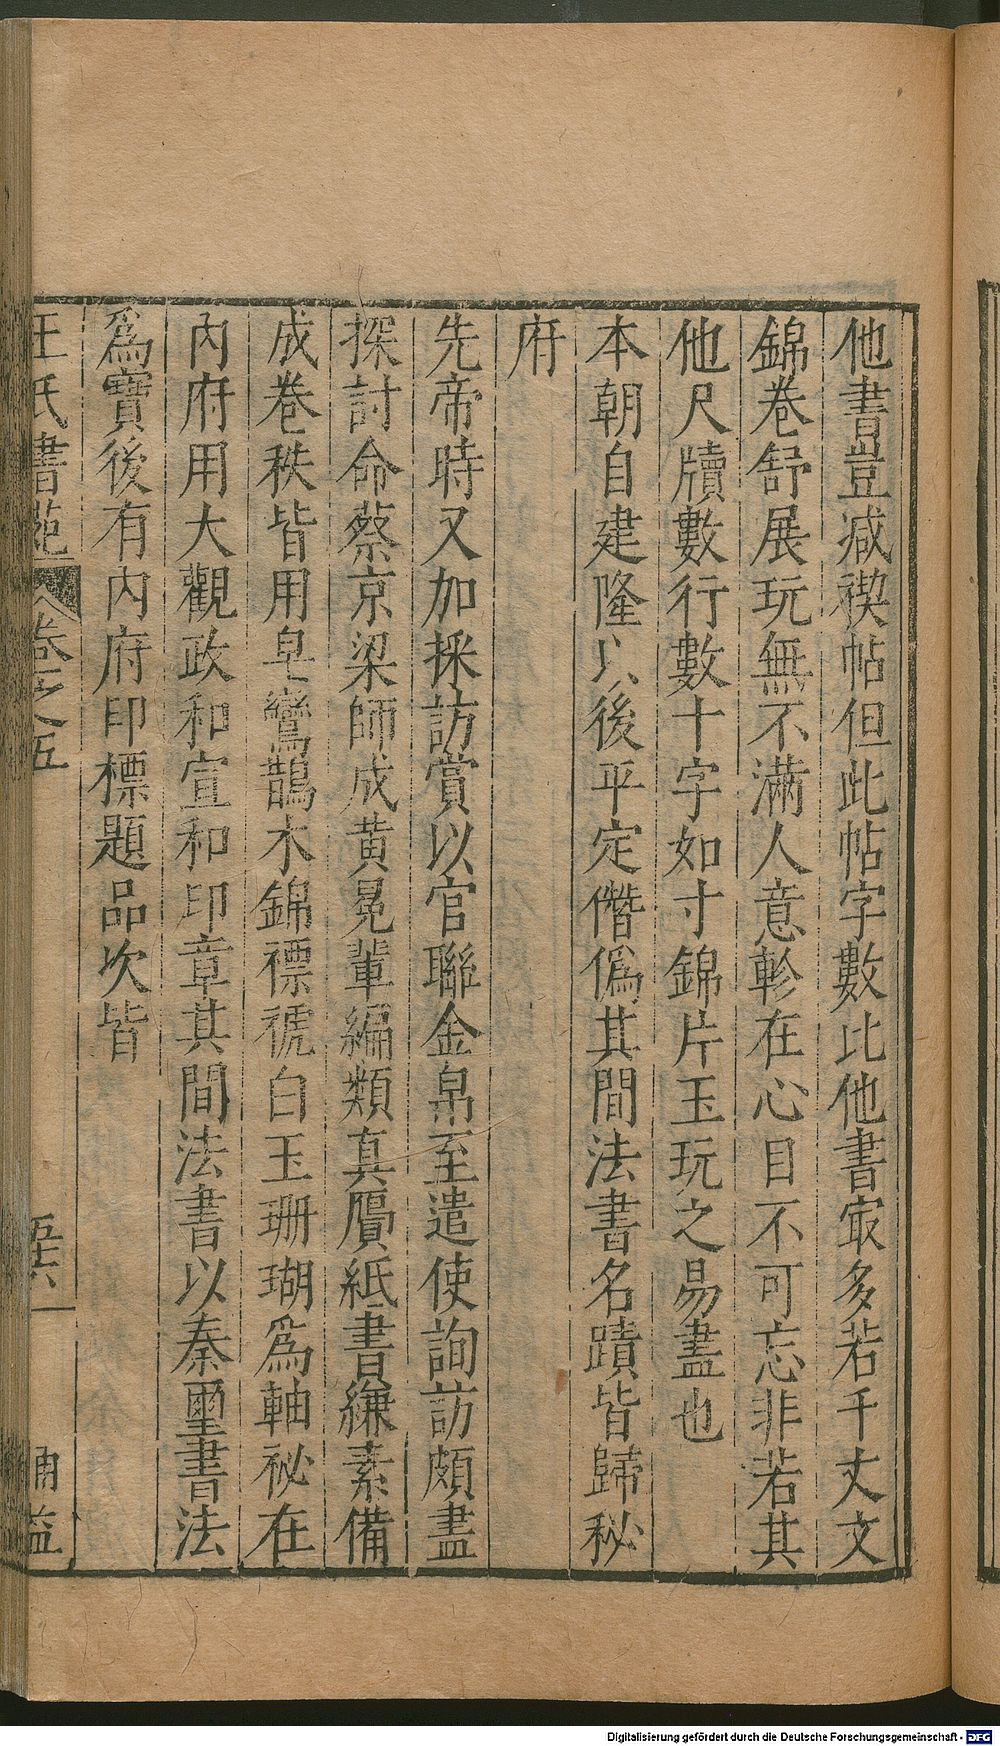 他書豈减禊帖但此帖字數比他書㝡多若千丈文
錦卷舒展玩無不滿人意軫在心目不可忘非若其
他尺牘數行數十字如寸錦片玉玩之易盡也
本朝自建隆以後平定僭僞其間法書名蹟皆歸秘
府
先帝時又加採訪賞以官聯金帛至遣使詢訪頗盡
探討命蔡京梁師成黄冕輩編類真贗紙書縑素備
成卷秩皆用皂鸞鵲木錦褾褫白玉珊瑚爲軸祕在
内府用大觀政和宣和印章其間法書以秦璽書法
爲寶後有内府印標題品次皆
王氏書苑 卷之五 五十六
Digitalisierung gefördert durch die Deutsche Forschungsgemeinschaft - DFG